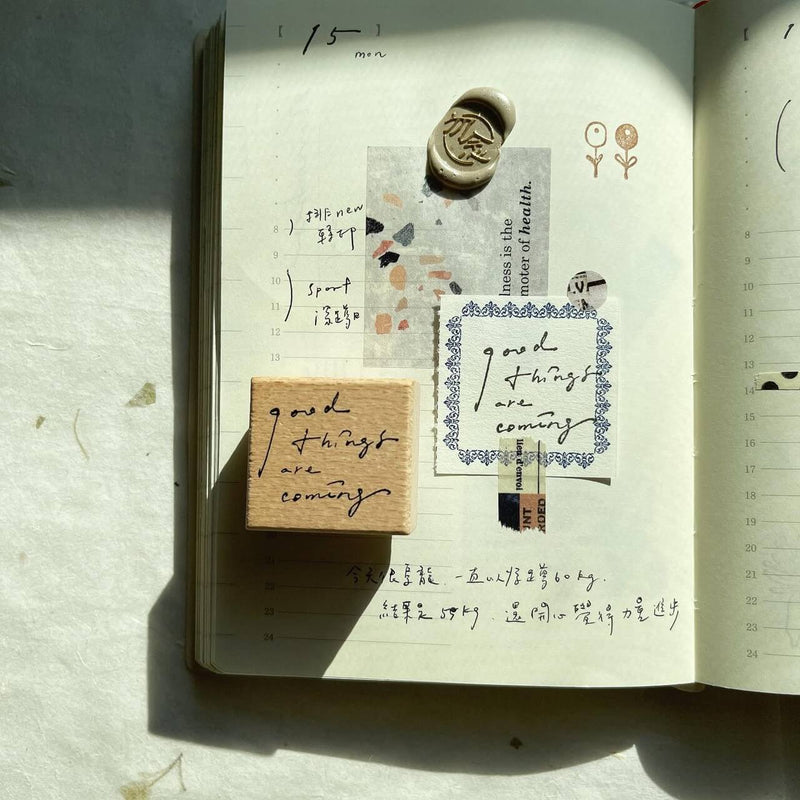 15
mon
排 new
章印
sport
深蹲日
8
9
10
11
12
13
20
21
22
23
24
加念
lness is the
moter of health.
good
things
are
coming
lieu d'envoi
INT
RDED
good
things
are
coming
今天很烏龍. 一直以為是蹲60kg.
結果是55kg. 還開心覺得力量進步
1
8
9
10
11
12
13
14
15
16
17
18
19
20
21
22
23
24